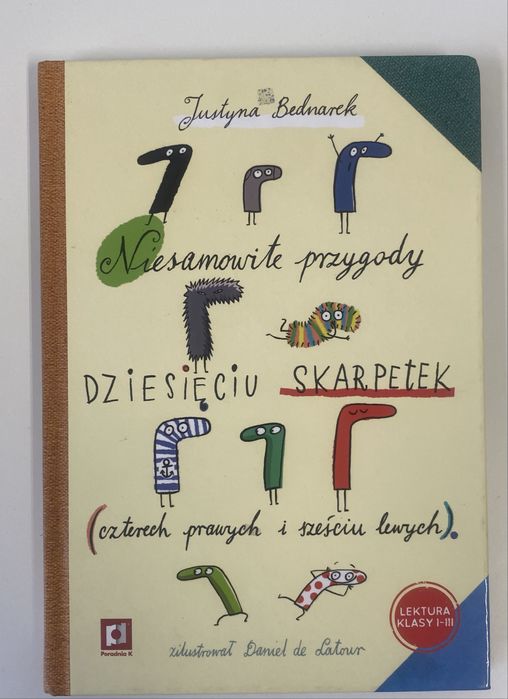 Justyna Bednarek
Niesamowite przygody
DZIESIĘCIU SKARPETEK
(czterech prawych i sześciu lewych).
LEKTURA
KLASY I-III
Poradnia K
zilustrował Daniel de Latour